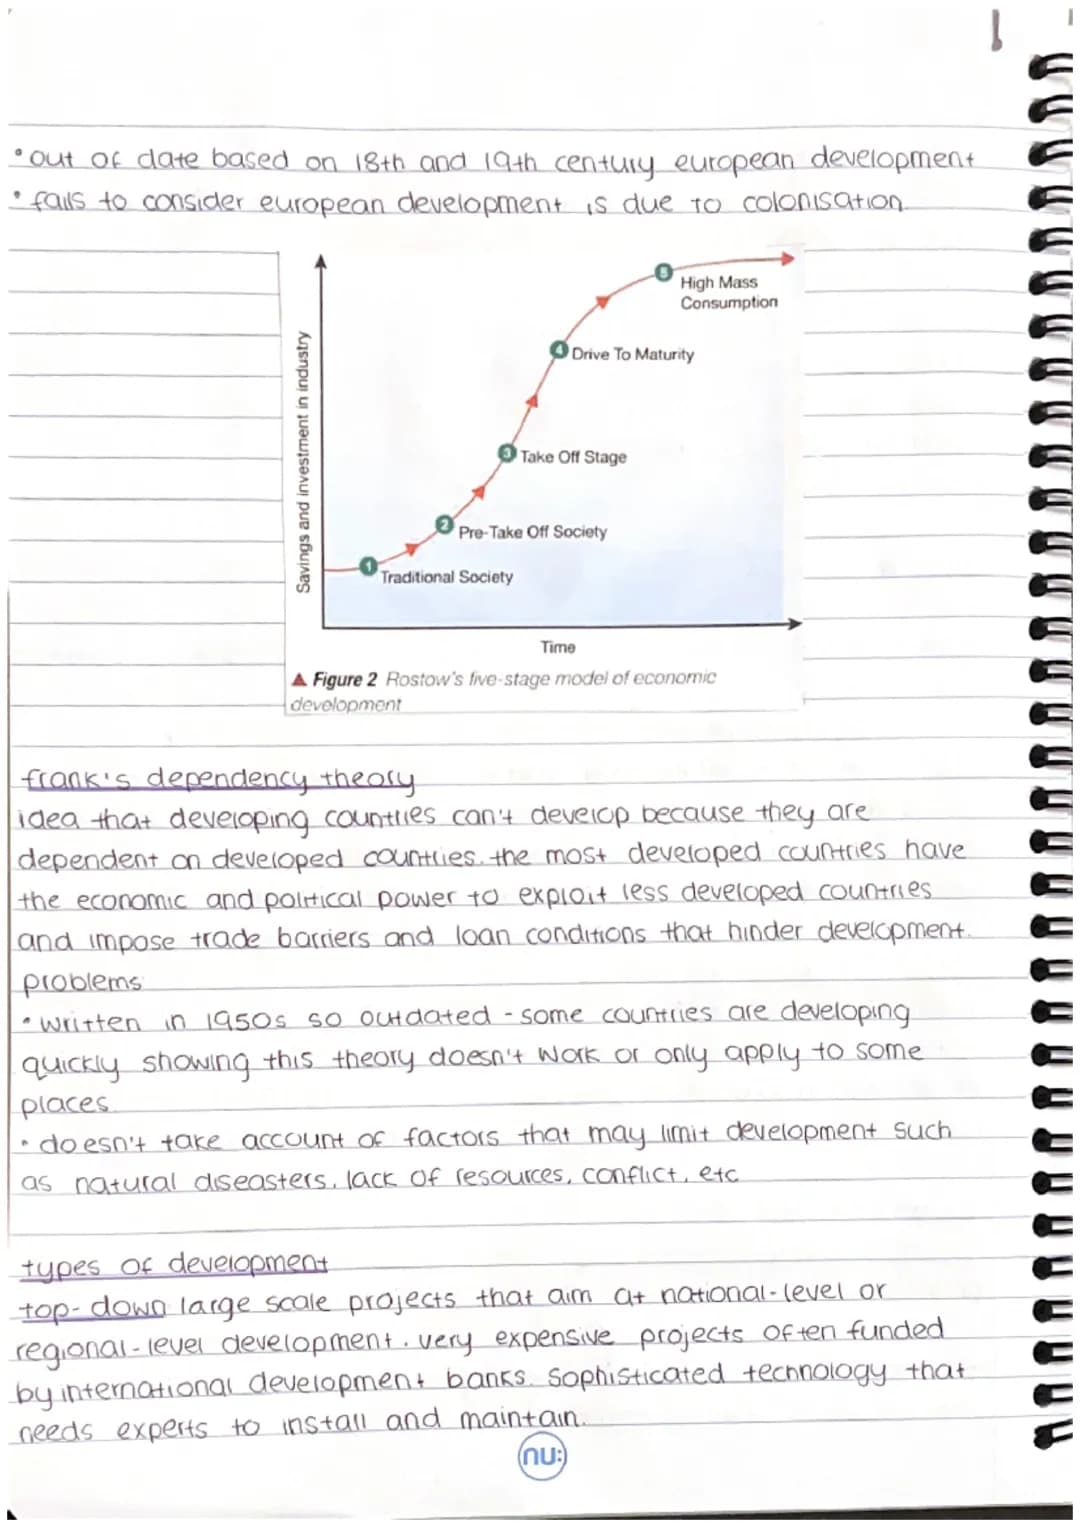 • out of date based on 18th and 19th century european development
• fails to consider european development is due to colonisation
Savings and investment in industry
5
High Mass
Consumption
4 Drive To Maturity
3 Take Off Stage
2 Pre-Take Off Society
1 Traditional Society
Time
▲ Figure 2 Rostow's five-stage model of economic
development
frank's dependency theory
idea that developing countries can't develop because they are
dependent on developed countries. the most developed countries have
the economic and political power to exploit less developed countries
and impose trade barriers and loan conditions that hinder development.
problems:
• written in 1950s so outdated - some countries are developing
quickly showing this theory doesn't work or only apply to some
places.
• doesn't take account of factors that may limit development such
as natural diseasters, lack of resources, conflict, etc
types of development
top-down large scale projects that aim at national-level or
regional-level development. very expensive projects often funded
by international development banks. Sophisticated technology that
needs experts to install and maintain.
nu: